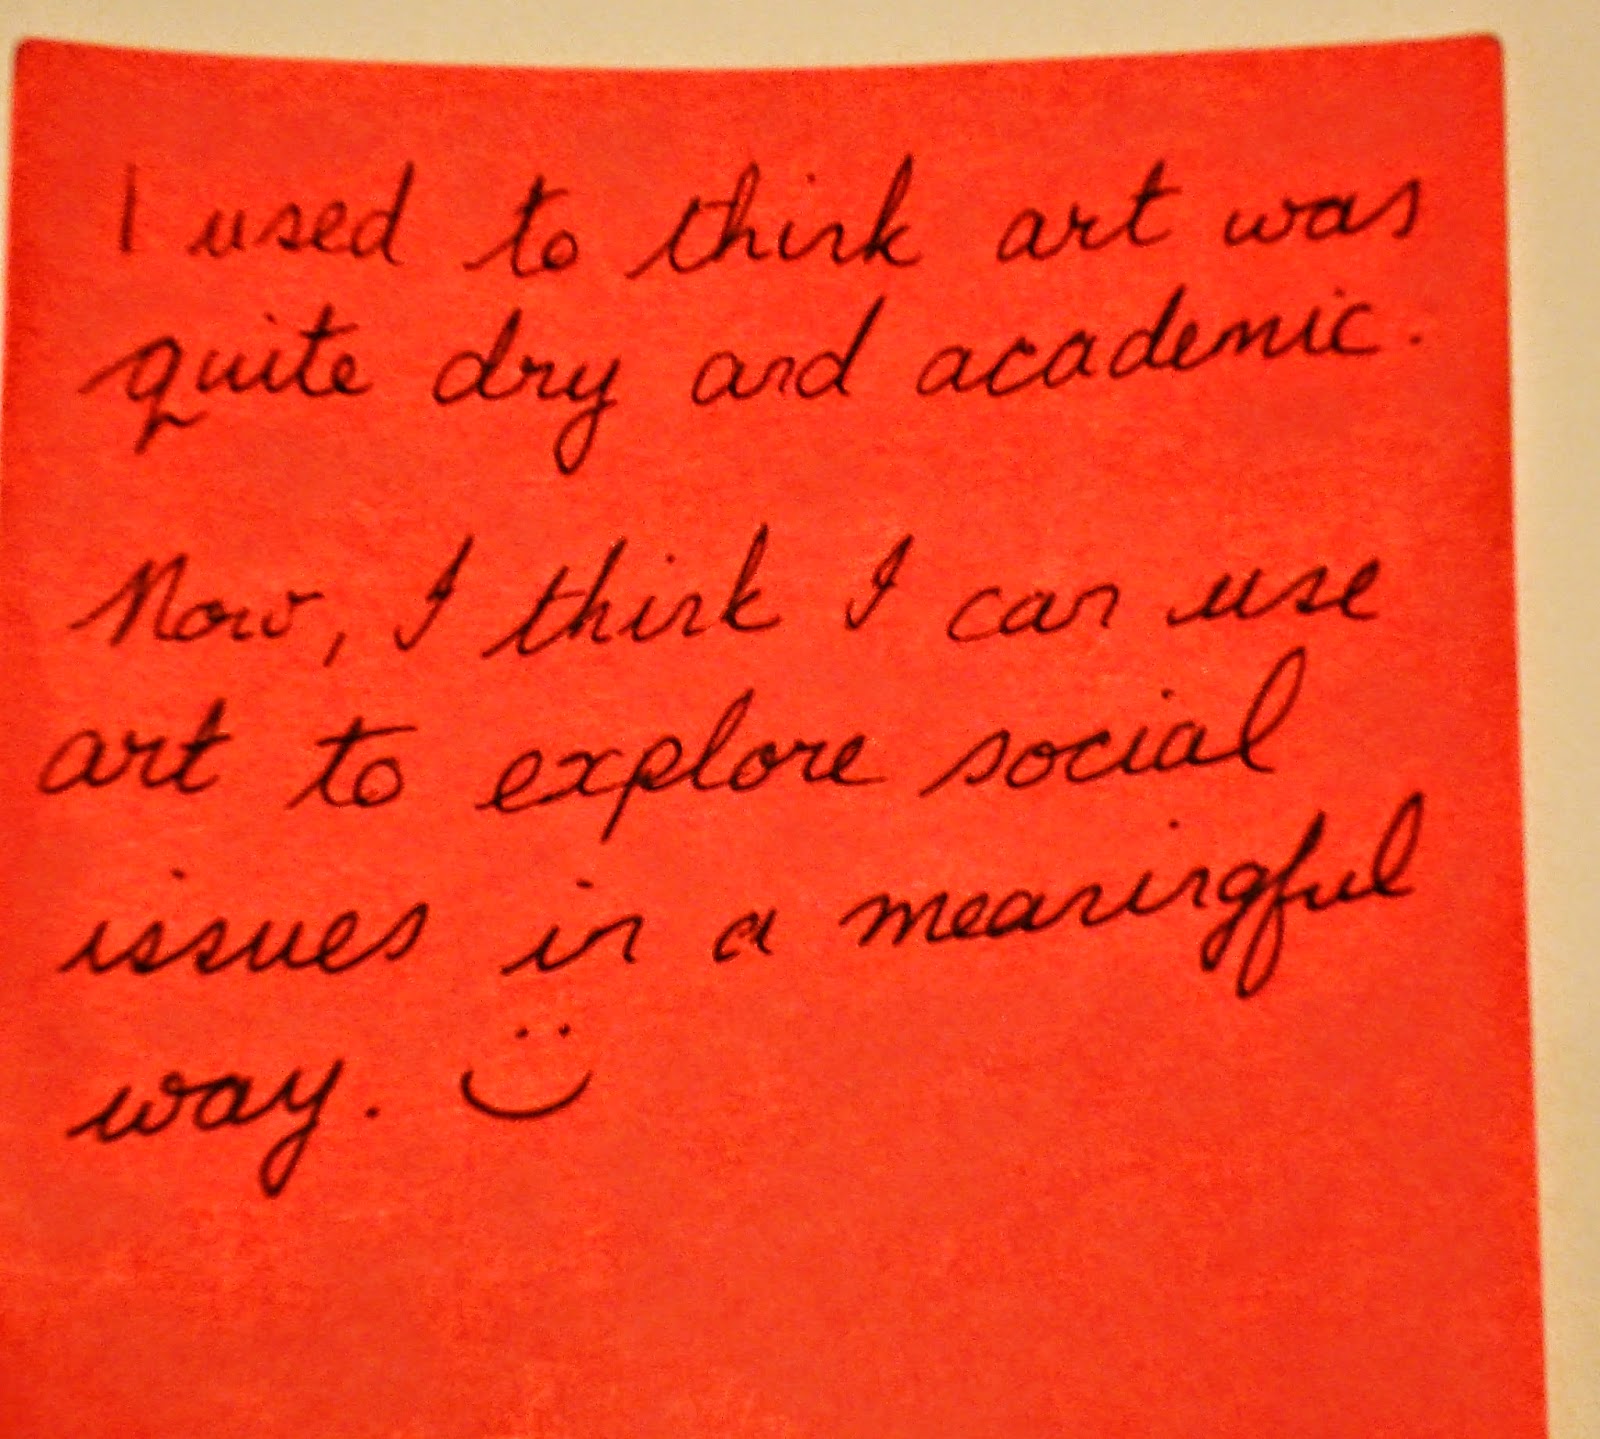 I used to think art was
quite dry and academic.
Now, I think I can use
art to explore social
issues in a meaningful
way.